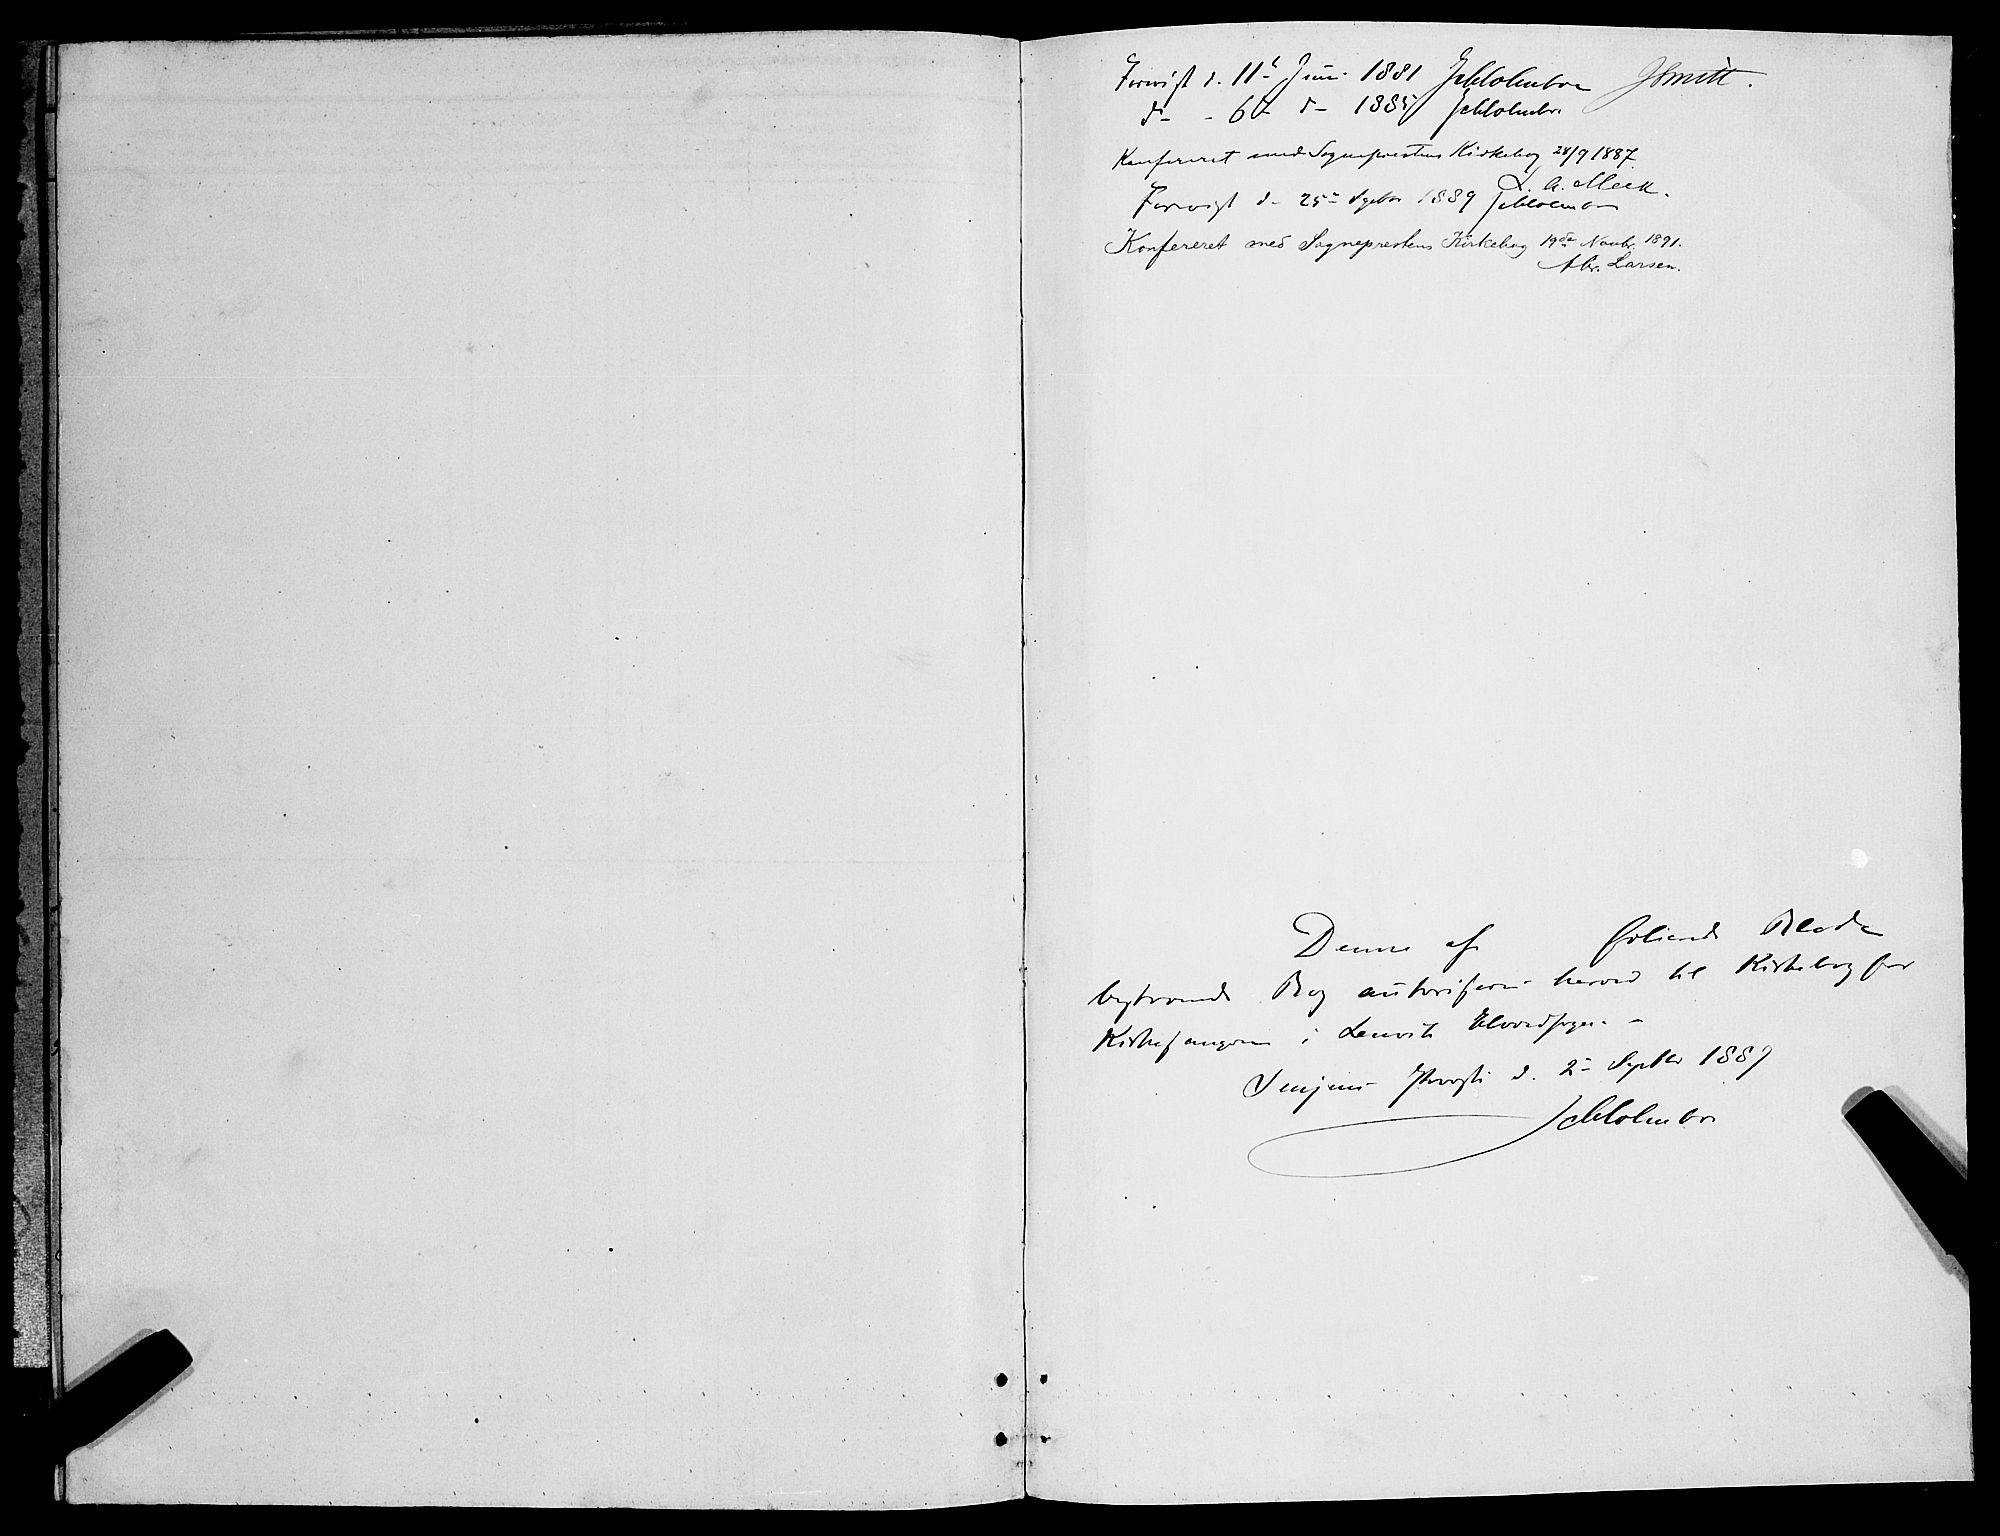 Forevist d. 11te Juni 1881 JChHolmboe JSmitt.
do - 6te do 1885 JChHolmboe
Konfereret med Sognepræstens Kirkebog 28/9 1887
L. A. Meek.
Forevist d. 25de Septbr 1889 JChHolmboe
Konfereret med Sogneprestens Kirkebog 19de Novbr. 1891.
Abr. Larsen.
Denne af folierede Blade
bestaaende Bog autoriseres herved til Kirkebog for
Kirkesangeren i Lenvik Hovedsogn. -
Senjens Provsti d. 2de Septbr 188
JChHolmboe